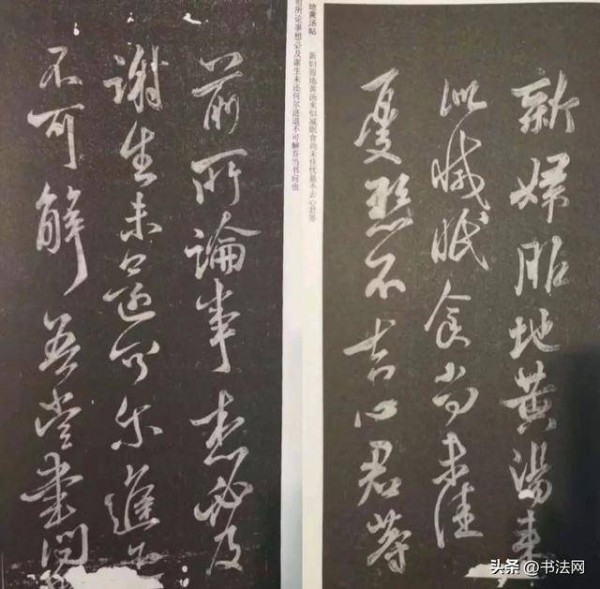 新婦服地黃湯来
似減眠食尚未佳
憂懸不去心君等
地黄汤帖 新妇服地黄汤来似减眠食尚未佳忧悬不去心君等
前所论事想必及谢生未还何尔进退不可解吾当书问也
前所論事想必及
謝生未還可尔進退
不可解吾當書問
头条 @书法网